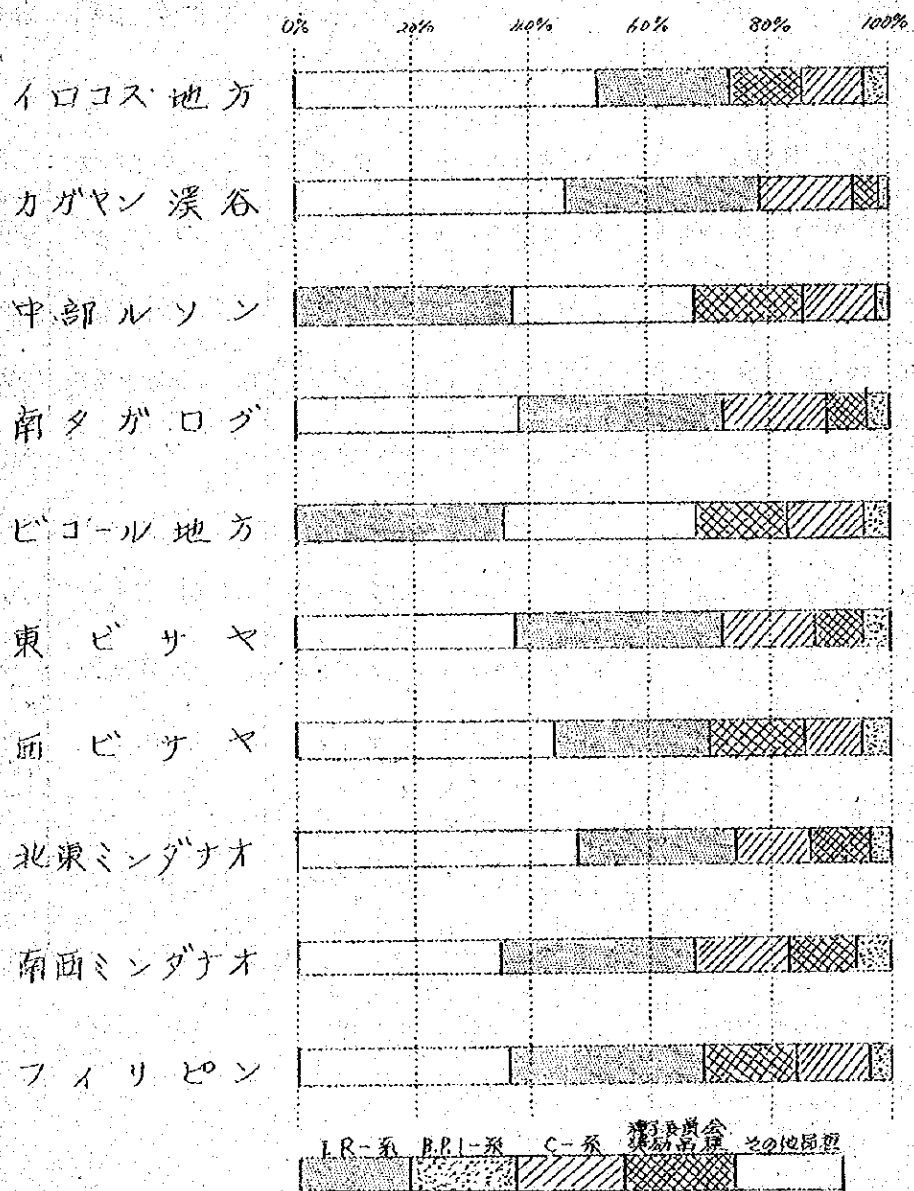 0% 20% 40% 60% 80% 100%
イロコス地方
カガヤン渓谷
中部ルソン
南タガログ
ビコール地方
東ビサヤ
西ビサヤ
北東ミンダナオ
南西ミンダナオ
フィリピン
I.R-系 B.P.I-系 C-系 奨励品種 その他品種